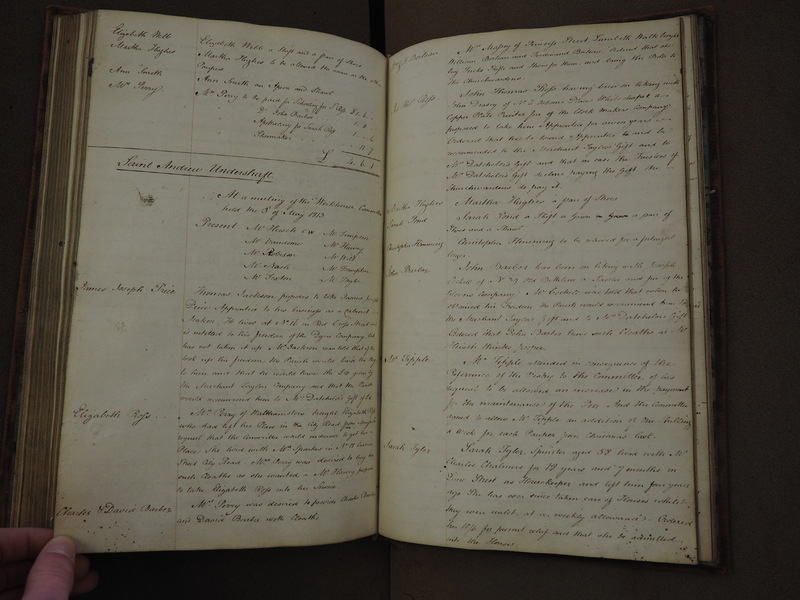 Elizabeth Webb
Martha Hughes
Ann Smith
Mr Perry
Elizabeth Webb a Shift and a pair of Shoes
Martha Hughes to be allowed the same as the other
Paupers
Ann Smith an Apron and Shawl
Mr Perry to be paid for
Do John Barber
Apothecary for Sarah
Shoemaker
£ 4. 6. 1
Saint Andrew Undershaft
At a meeting of the Workhouse Committee
held the 3d of May 1813
Present Mr Mr Simpson
Mr Vandome Mr Fleury
Mr Robson Mr Witt
Mr Nash Mr Dempster
Mr Sexton Mr
James Joseph Price
Thomas Jackson proposes to take James Joseph
Price Apprentice to his business as a Cabinet
Maker. He lives at No 16 in Red Cross Street and
is intitled to his freedom of the Company but
has not taken it up Mr Jackson was told that if he
took up his freedom the Parish would bind the Boy
to him and that he would have the
the Merchant Taylors Company and that the Parish
would recommend him to Mr Datchelor's Gift of
Elizabeth Ross
Mr Perry of Walthamstow brought Elizabeth Ross
who had left her Place in the City Road
request that the Committee would endeavour to get her a
Place, She lived with Mr in No 18
Street City Road. Mr Perry was desired to buy her
such Cloaths as she wanted & Mr Fleury proposes
to take Elizabeth Ross into his Service
Charles & David Barber
Mr Perry was desired to provide Charles Barber
and David Barber with Cloaths
Barleian
Mr Massey of Princess Street Lambeth Walk brought
William Barleian and Ferdinand Barleian. Ordered that he
buy Frocks Shifts and Shoes for them and bring the Bills to
the Churchwardens
Jno Thos Ross
John Thomas Ross having been on liking with
John of No 2 Adams Place Whitechapel a
Copper Plate Printer free of the Clock Makers Company
proposed to take him Apprentice for seven years
Ordered that he be bound Apprentice to and be
recommended to the Merchant Taylors Gift and to
Mr Datchelor's Gift and that in case the Trustees of
Mr Datchelor's Gift decline paying the Gift the
Churchwardens do pay it.
Martha Hughes
Martha Hughes a pair of Shoes
Sarah Pond
Sarah Pond a Shift a Gown a pair of
Shoes and a Shawl
Christopher Flemming
Christopher Flemming to be relieved for a fortnight
longer
John Barber
John Barber has been on liking with Joseph
of No 29 Old Bethlem a and free of the
Glovers Company. Mr was told that when he
obtained his freedom the Parish would recommend him to
the Merchant Taylors Gift and to Mr Datchelor's Gift
Ordered that John Barber have such Cloaths as Mr
thinks proper
Mr Tipple
Mr Tipple attended in consequence of the
Reference of the Vestry to this Committee, of his
request to be allowed an increase in the payment
for the maintenance of the Poor And the Committee
agreed to allow Mr Tipple an addition of One Shilling
a Week for each Pauper from Christmas last.
Sarah Tyler
Sarah Tyler Spinster aged 58 lived with Mr
Charles Chalmers for 18 years and 7 months in
Lime Street as Housekeeper and left him four years
ago She has ever since taken care of Houses whilst
they were unlet, at a weekly allowance. Ordered
for present relief and that she be admitted
into the House